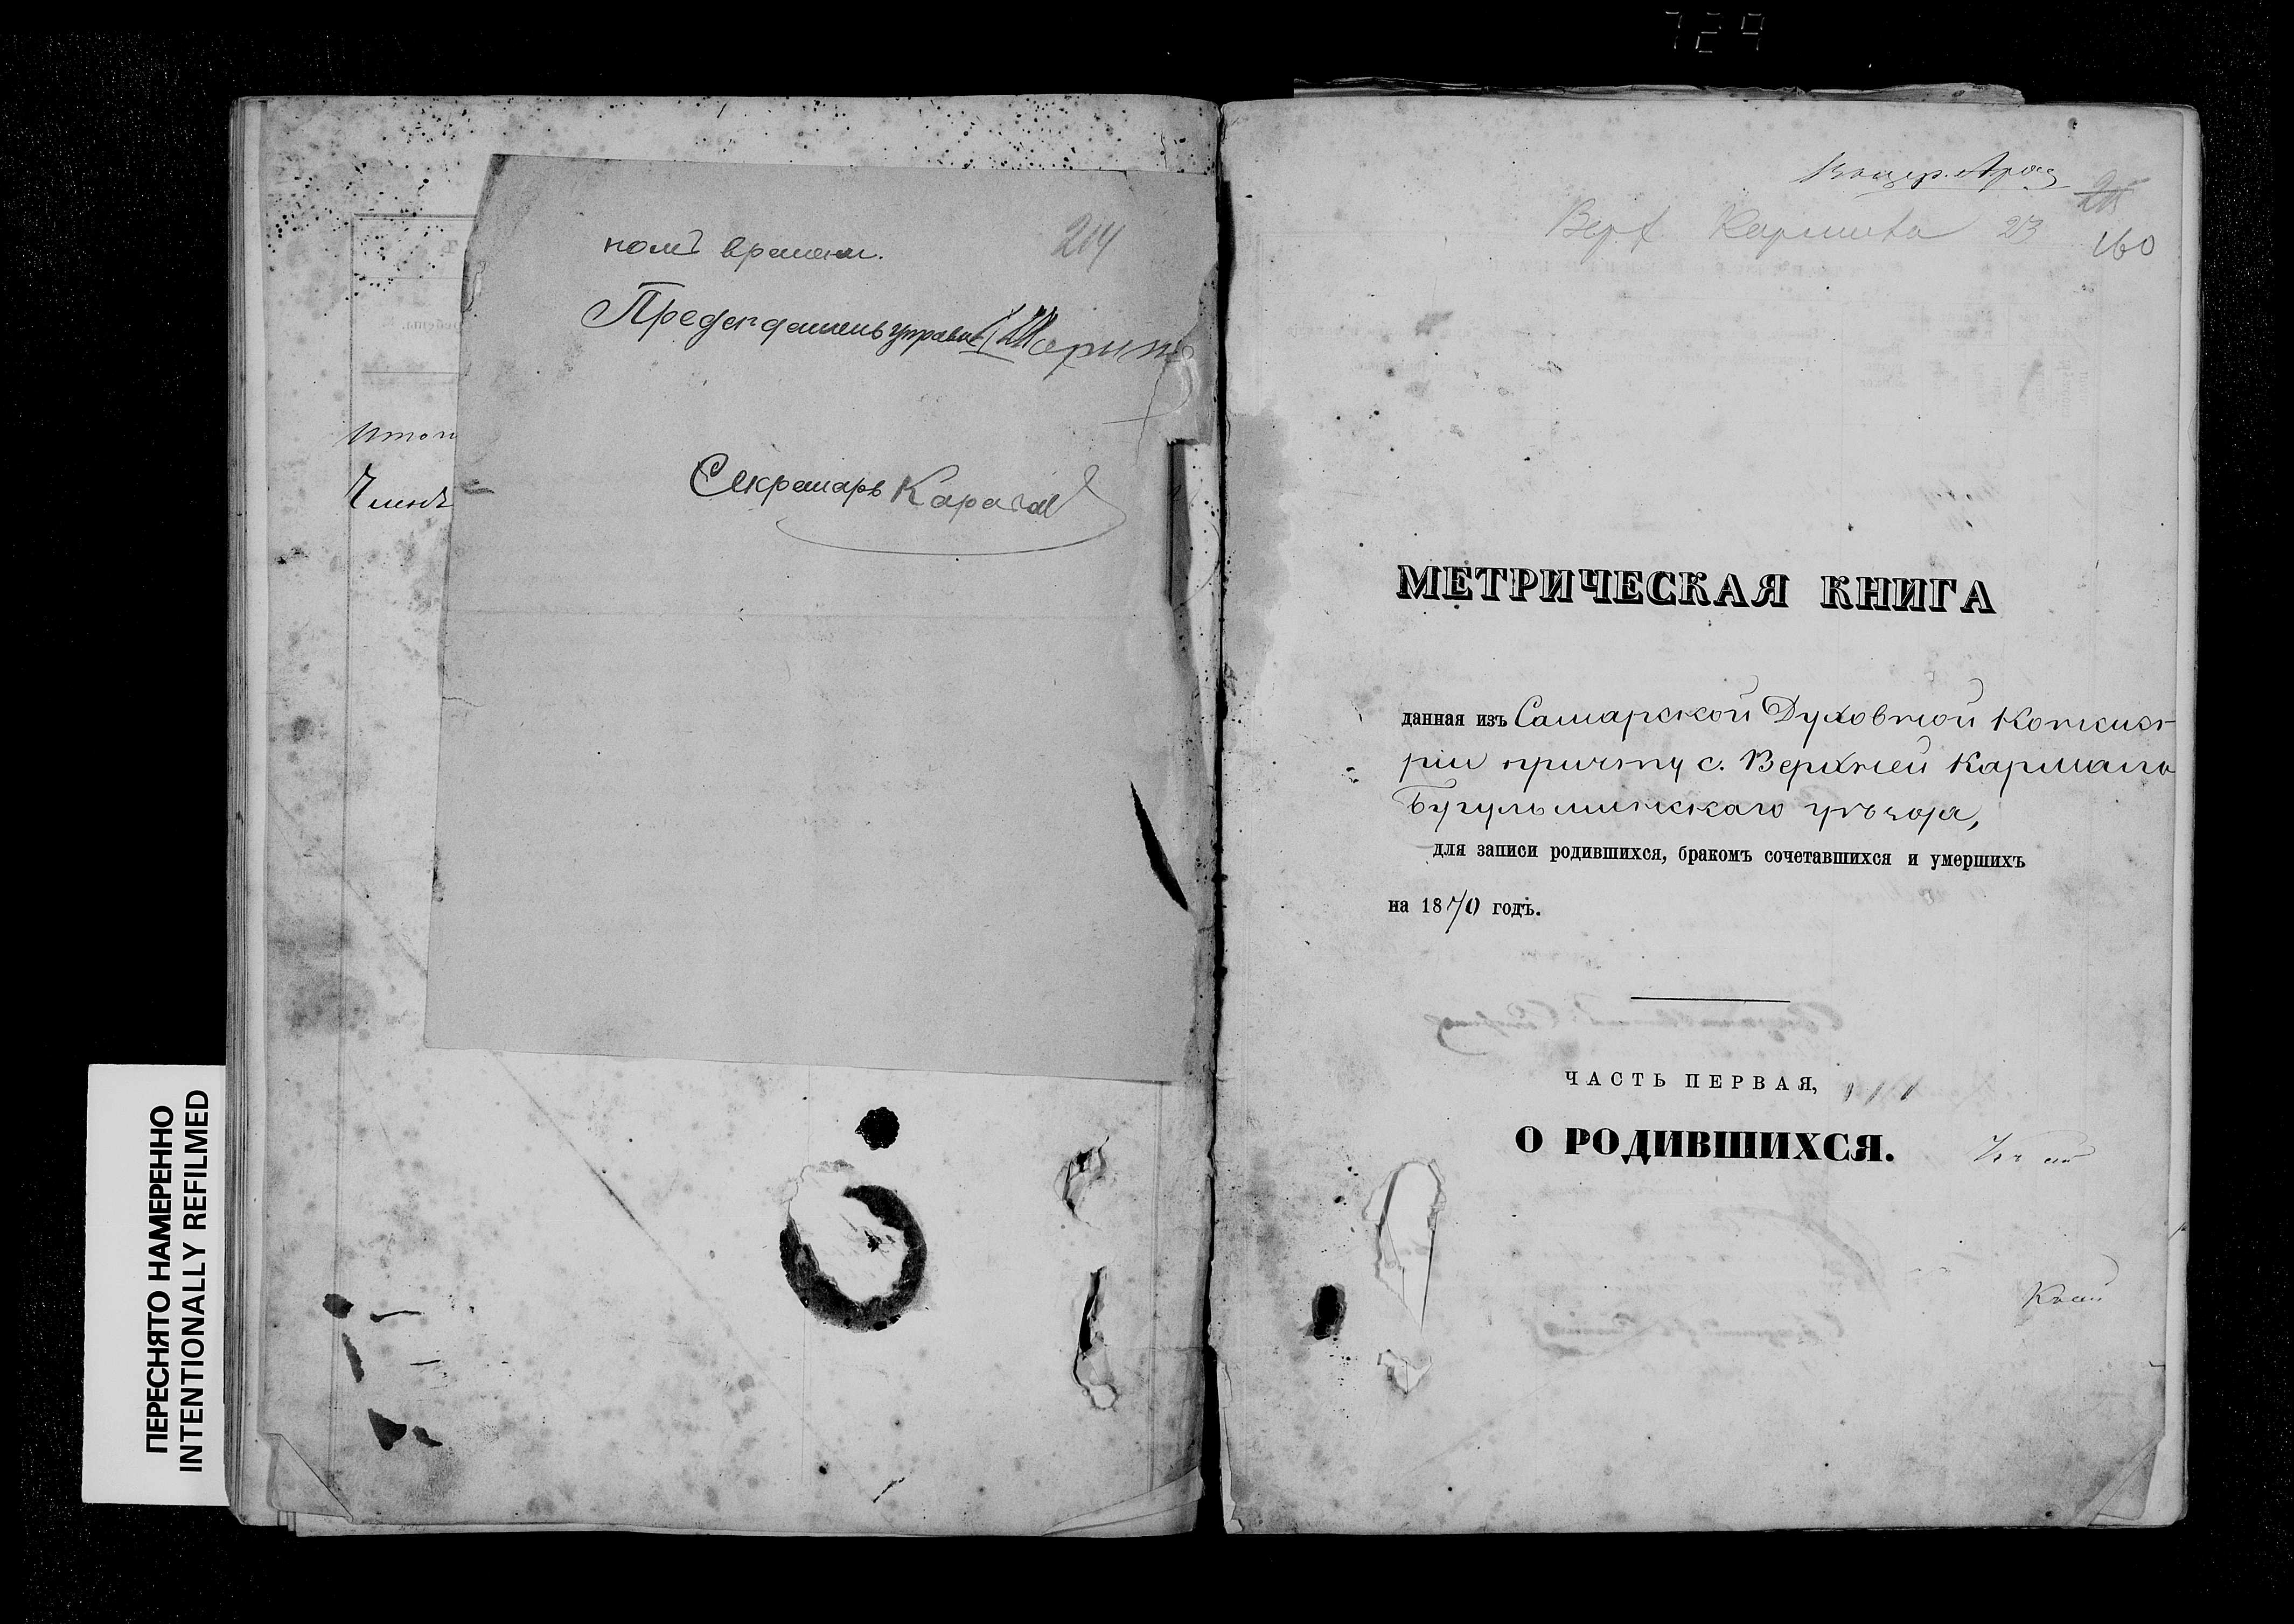 729
номъ времени.
214
Председатель управы
Секретарь
Итог
Членъ
Верх Кармала 23
160
МЕТРИЧЕСКАЯ КНИГА
данная изъ Самарской Духовной Консист-
ріи причту с. Верхней Кармалы
Бугульминскаго уѣзда,
для записи родившихся, бракомъ сочетавшихся и умершихъ
на 1870 годъ.
ЧАСТЬ ПЕРВАЯ,
О РОДИВШИХСЯ.
ПЕРЕСНЯТО НАМЕРЕННО
INTENTIONALLY REFILMED